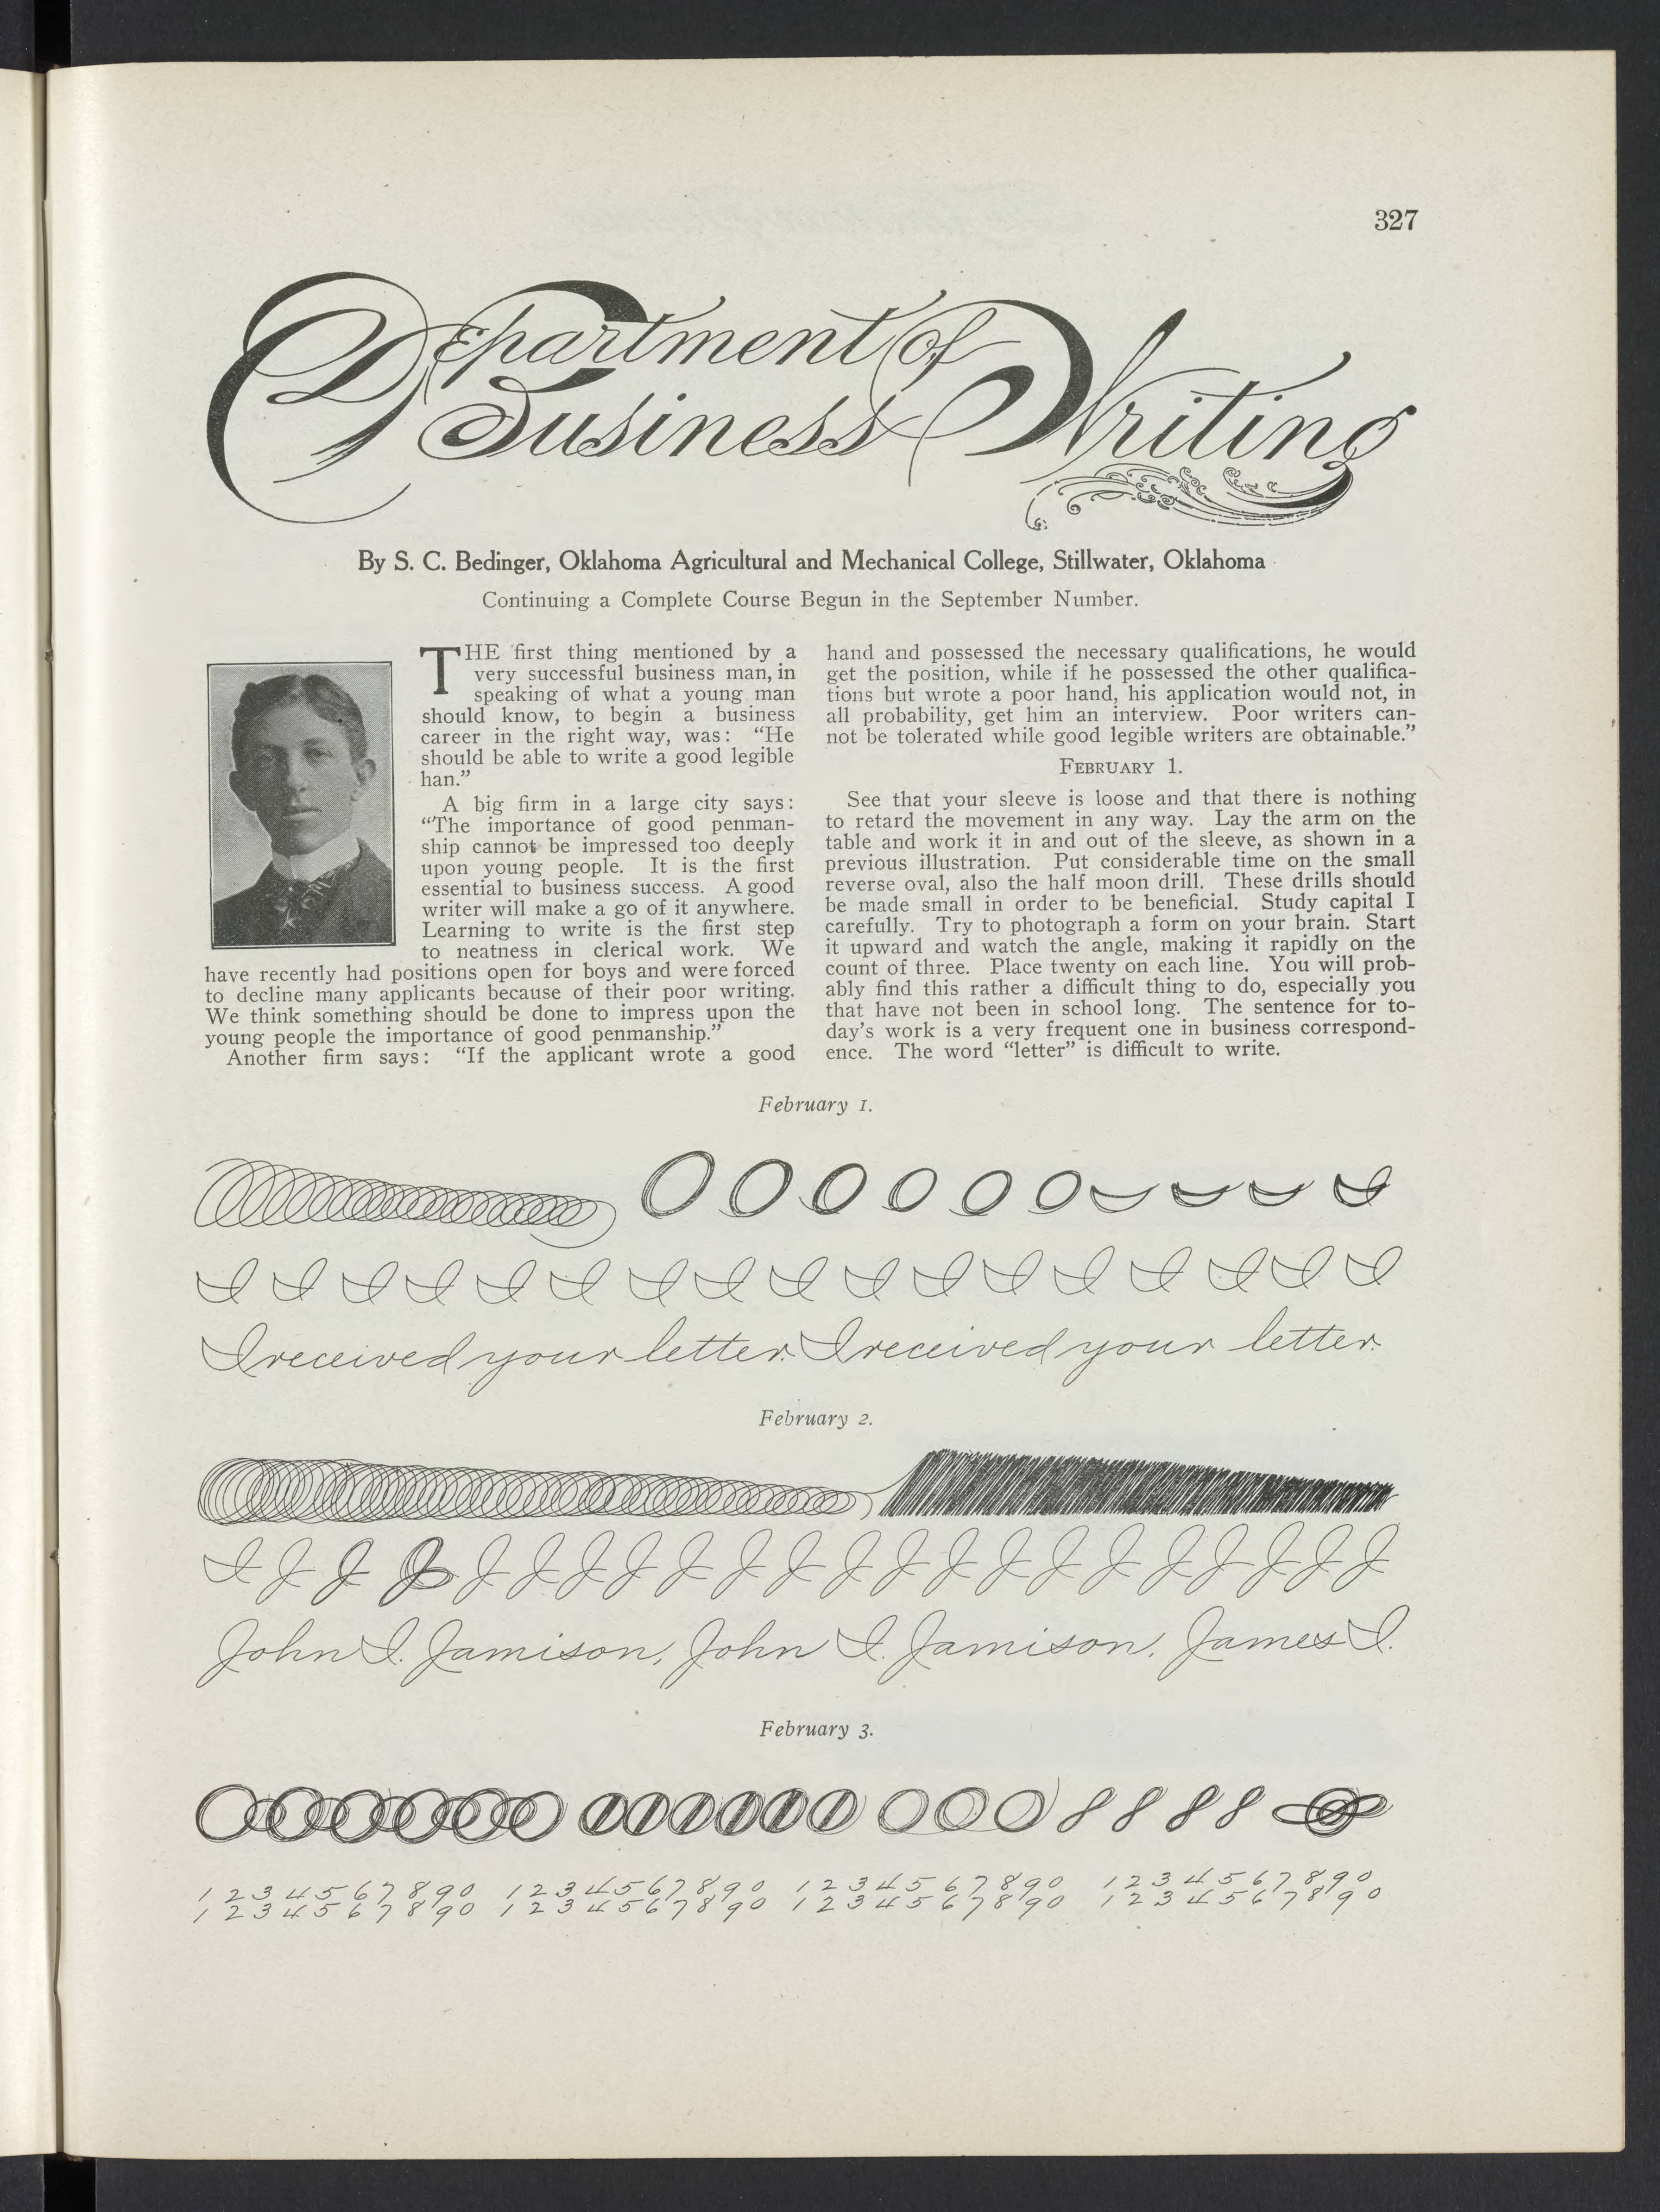 327
Department of
Business Writing
By S. C. Bedinger, Oklahoma Agricultural and Mechanical College, Stillwater, Oklahoma
Continuing a Complete Course Begun in the September Number.
THE first thing mentioned by a
very successful business man, in
speaking of what a young man
should know, to begin a business
career in the right way, was: "He
should be able to write a good legible
han."
A big firm in a large city says:
"The importance of good penman-
ship cannot be impressed too deeply
upon young people. It is the first
essential to business success. A good
writer will make a go of it anywhere.
Learning to write is the first step
to neatness in clerical work. We
have recently had positions open for boys and were forced
to decline many applicants because of their poor writing.
We think something should be done to impress upon the
young people the importance of good penmanship."
Another firm says: "If the applicant wrote a good
hand and possessed the necessary qualifications, he would
get the position, while if he possessed the other qualifica-
tions but wrote a poor hand, his application would not, in
all probability, get him an interview. Poor writers can-
not be tolerated while good legible writers are obtainable."
FEBRUARY 1.
See that your sleeve is loose and that there is nothing
to retard the movement in any way. Lay the arm on the
table and work it in and out of the sleeve, as shown in a
previous illustration. Put considerable time on the small
reverse oval, also the half moon drill. These drills should
be made small in order to be beneficial. Study capital I
carefully. Try to photograph a form on your brain. Start
it upward and watch the angle, making it rapidly on the
count of three. Place twenty on each line. You will prob-
ably find this rather a difficult thing to do, especially you
that have not been in school long. The sentence for to-
day's work is a very frequent one in business correspond-
ence. The word "letter" is difficult to write.
February 1.
I I I I I I I I I I I I I I I I I
I received your letter. I received your letter.
February 2.
I J J J J J J J J J J J J J J J J J J J J J
John I. Jamison, John I. Jamison, James I.
February 3.
8 8 8 8
1 2 3 4 5 6 7 8 9 0 1 2 3 4 5 6 7 8 9 0 1 2 3 4 5 6 7 8 9 0 1 2 3 4 5 6 7 8 9 0
1 2 3 4 5 6 7 8 9 0 1 2 3 4 5 6 7 8 9 0 1 2 3 4 5 6 7 8 9 0 1 2 3 4 5 6 7 8 9 0